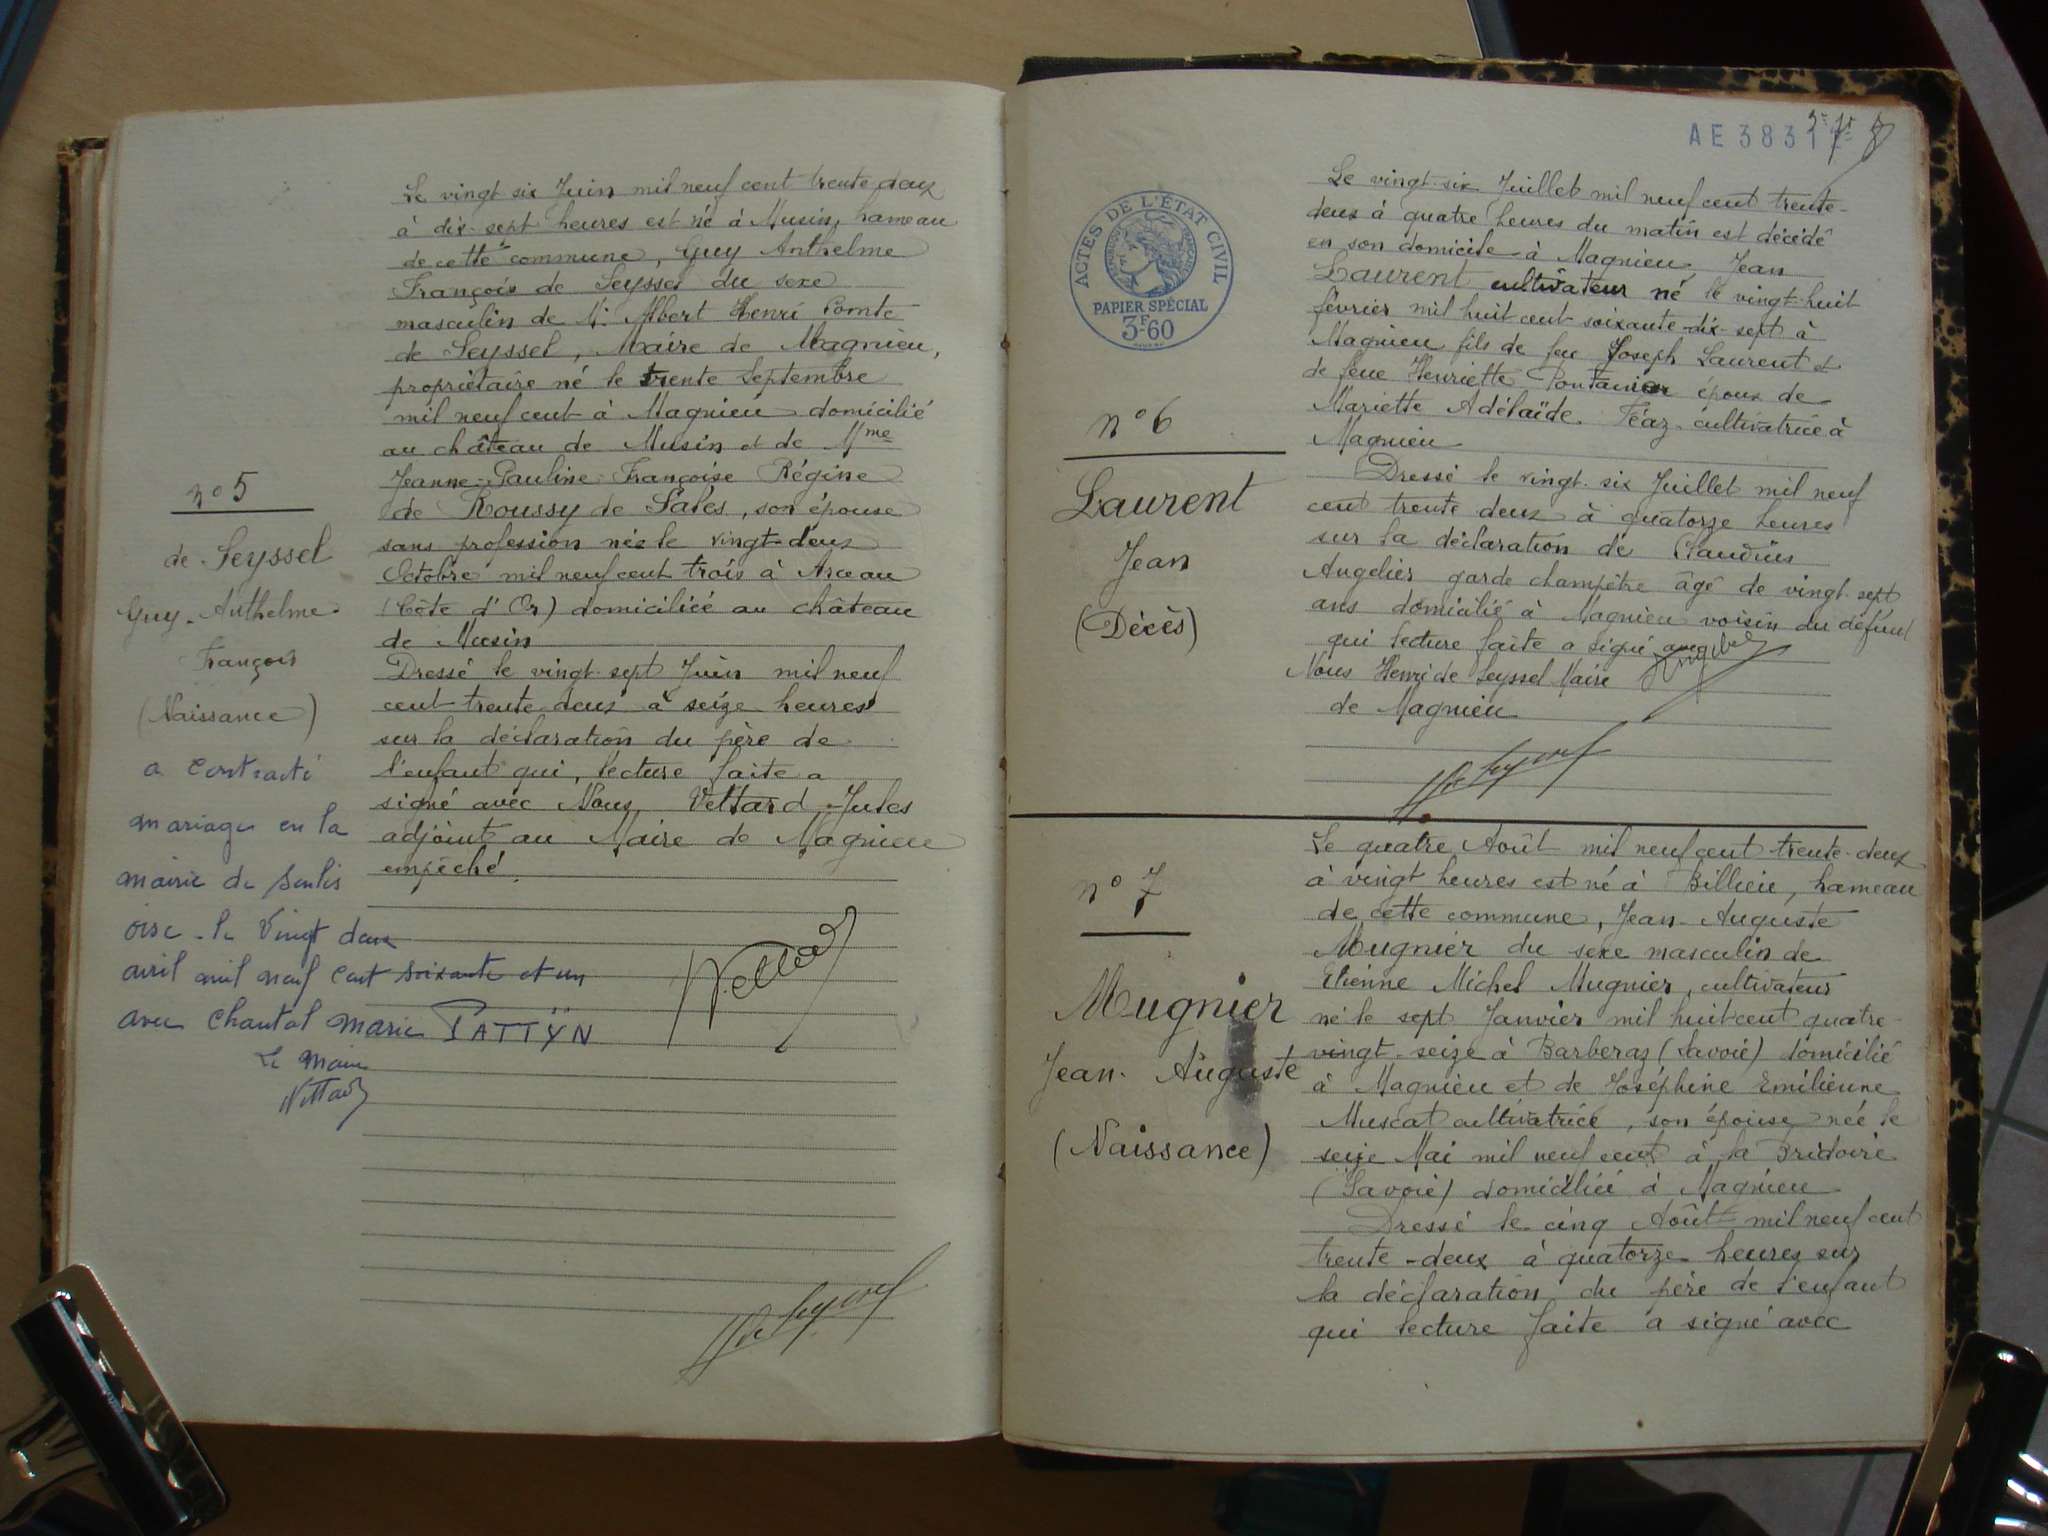 n° 5
de Seyssel
Guy-Anthelme-
François
(Naissance)
a contracté
mariage en la
mairie de Senlis
oise - le Vingt deux
avril mil neuf cent soixante et un
avec Chantal Marie PATTŸN
Le Maire
Le vingt six Juin mil neuf cent trente deux
à dix-sept heures est né à Musin, hameau
de cette commune, Guy Anthelme
François de Seyssel du sexe
masculin de M. Albert Henri Comte
de Seyssel, Maire de Magnieu,
propriétaire né le trente Septembre
mil neuf cent à Magnieu domicilié
au château de Musin et de Mme
Jeanne-Pauline-Françoise Régine
de Roussy de Sales, son épouse
sans profession née le vingt-deux
Octobre mil neuf cent trois à Arceau
(Côte d'Or) domiciliée au château
de Musin
Dressé le vingt-sept Juin mil neuf
cent trente-deux à seize heures
sur la déclaration du père de
l'enfant qui, lecture faite a
signé avec Nous, Vettard Jules
adjoint au Maire de Magnieu
empêché.
Vettard
H de Seyssel
AE 3831
ACTES DE L'ÉTAT CIVIL
RÉPUBLIQUE FRANÇAISE
PAPIER SPÉCIAL
3F60
n° 6
Laurent
Jean
(Décès)
Le vingt-six Juillet mil neuf cent trente-
deux à quatre heures du matin est décédé
en son domicile à Magnieu, Jean
Laurent cultivateur né le vingt-huit
février mil huit cent soixante-dix-sept à
Magnieu fils de feu Joseph Laurent et
de feue Henriette Pontanier époux de
Mariette Adélaïde Féaz cultivatrice à
Magnieu
Dressé le vingt-six Juillet mil neuf
cent trente deux à quatorze heures
sur la déclaration de Claudius
Angelier garde champêtre âgé de vingt-sept
ans domicilié à Magnieu voisin du défunt
qui lecture faite a signé avec
Nous Henri de Seyssel Maire
de Magnieu
H de Seyssel
n° 7
Mugnier
Jean-Auguste
(Naissance)
Le quatre Août mil neuf cent trente-deux
à vingt heures est né à Billieu, hameau
de cette commune, Jean-Auguste
Mugnier du sexe masculin de
Etienne Michel Mugnier, cultivateur
né le sept Janvier mil huit cent quatre-
vingt-seize à Barberaz (Savoie) domicilié
à Magnieu et de Joséphine Emilienne
Muscat cultivatrice, son épouse, née le
seize Mai mil neuf cent à la Bridoire
(Savoie) domiciliée à Magnieu
Dressé le cinq Août mil neuf cent
trente-deux à quatorze heures sur
la déclaration du père de l'enfant
qui lecture faite a signé avec